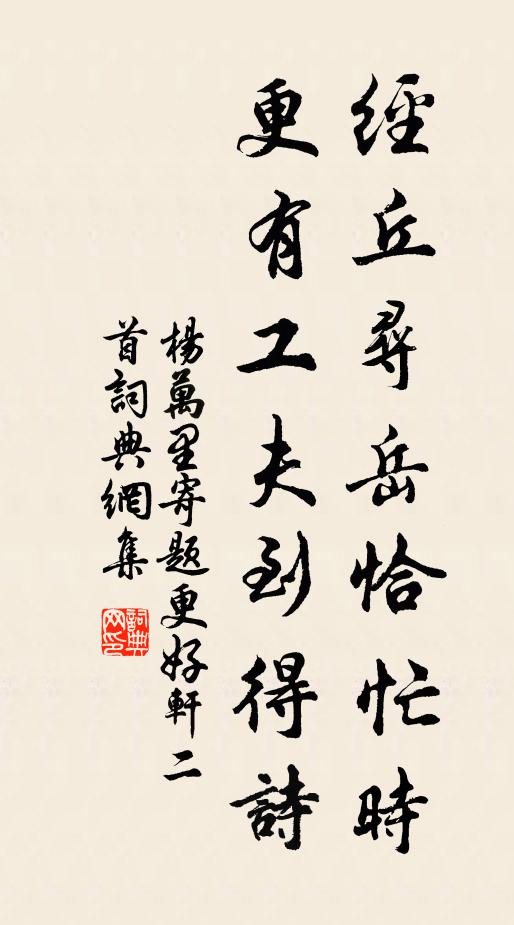 經丘尋岳恰忙時
更有工夫到得詩
楊萬里寄題更好軒二
首詞典網集
詞典
网印